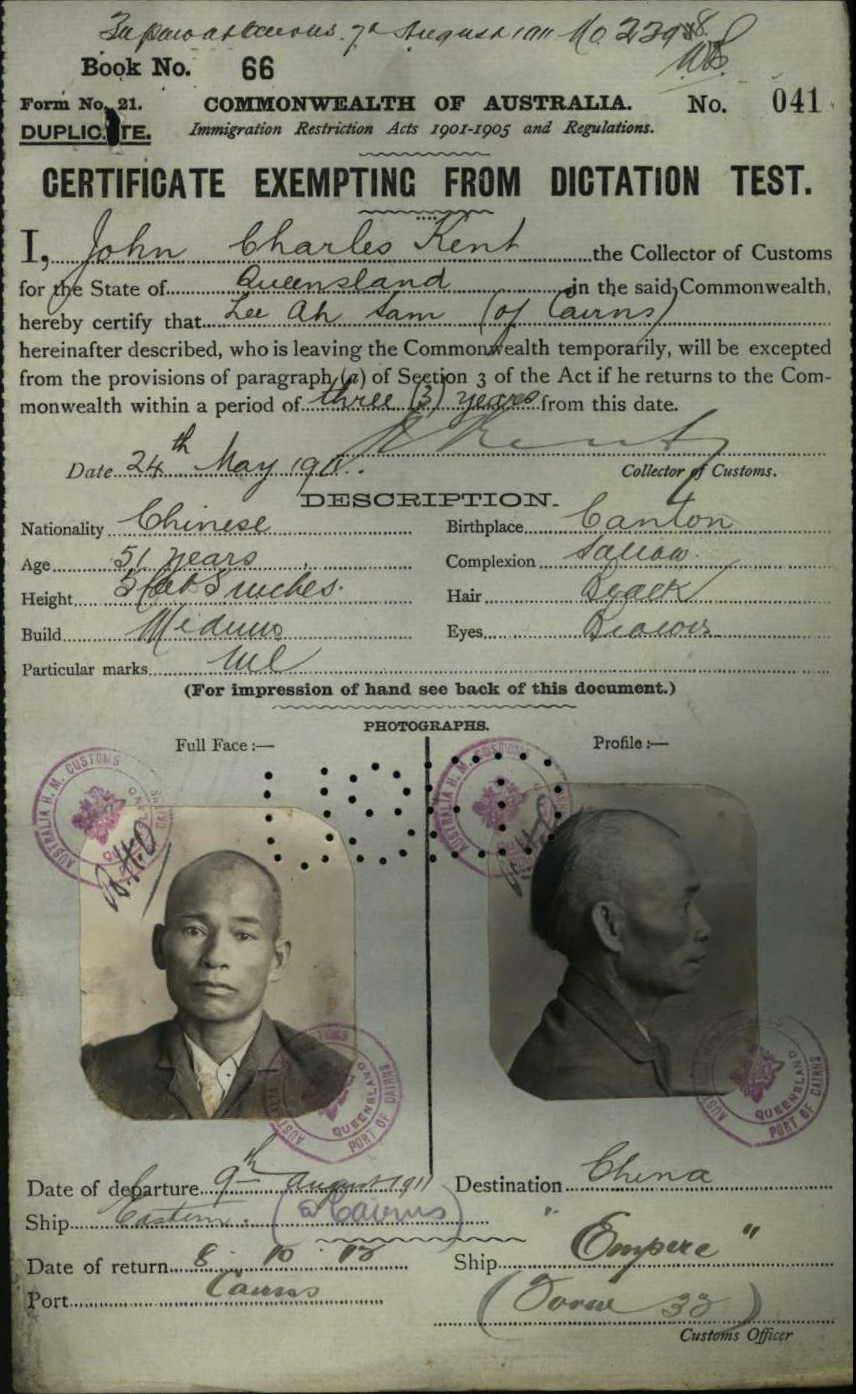 7th August 1911 No 23988
Book No. 66
Form No. 21. COMMONWEALTH OF AUSTRALIA. No. 041
DUPLICATE. Immigration Restriction Acts 1901-1905 and Regulations.
CERTIFICATE EXEMPTING FROM DICTATION TEST.
I, John Charles Kent the Collector of Customs
for the State of Queensland in the said Commonwealth,
hereby certify that Lee Ah Sam (of Cairns)
hereinafter described, who is leaving the Commonwealth temporarily, will be excepted
from the provisions of paragraph (a) of Section 3 of the Act if he returns to the Com-
monwealth within a period of three (3) years from this date.
Kent
Date 24th May 1911. Collector of Customs.
DESCRIPTION.
Nationality Chinese Birthplace Canton
Age 51 years Complexion Sallow.
Height 5 feet 5 inches. Hair Black
Build Medium Eyes Brown
Particular marks Nil
(For impression of hand see back of this document.)
PHOTOGRAPHS.
Full Face :— Profile :—
AUSTRALIA H. M. CUSTOMS
AUSTRALIA H. M. CUSTOMS
QUEENSLAND
PORT OF CAIRNS
QUEENSLAND
PORT OF CAIRNS
Date of departure 9th August 1911 Destination China
Ship Eastern (Cairns)
Date of return 8 10 12 Ship "Empire"
Port Cairns
Customs Officer